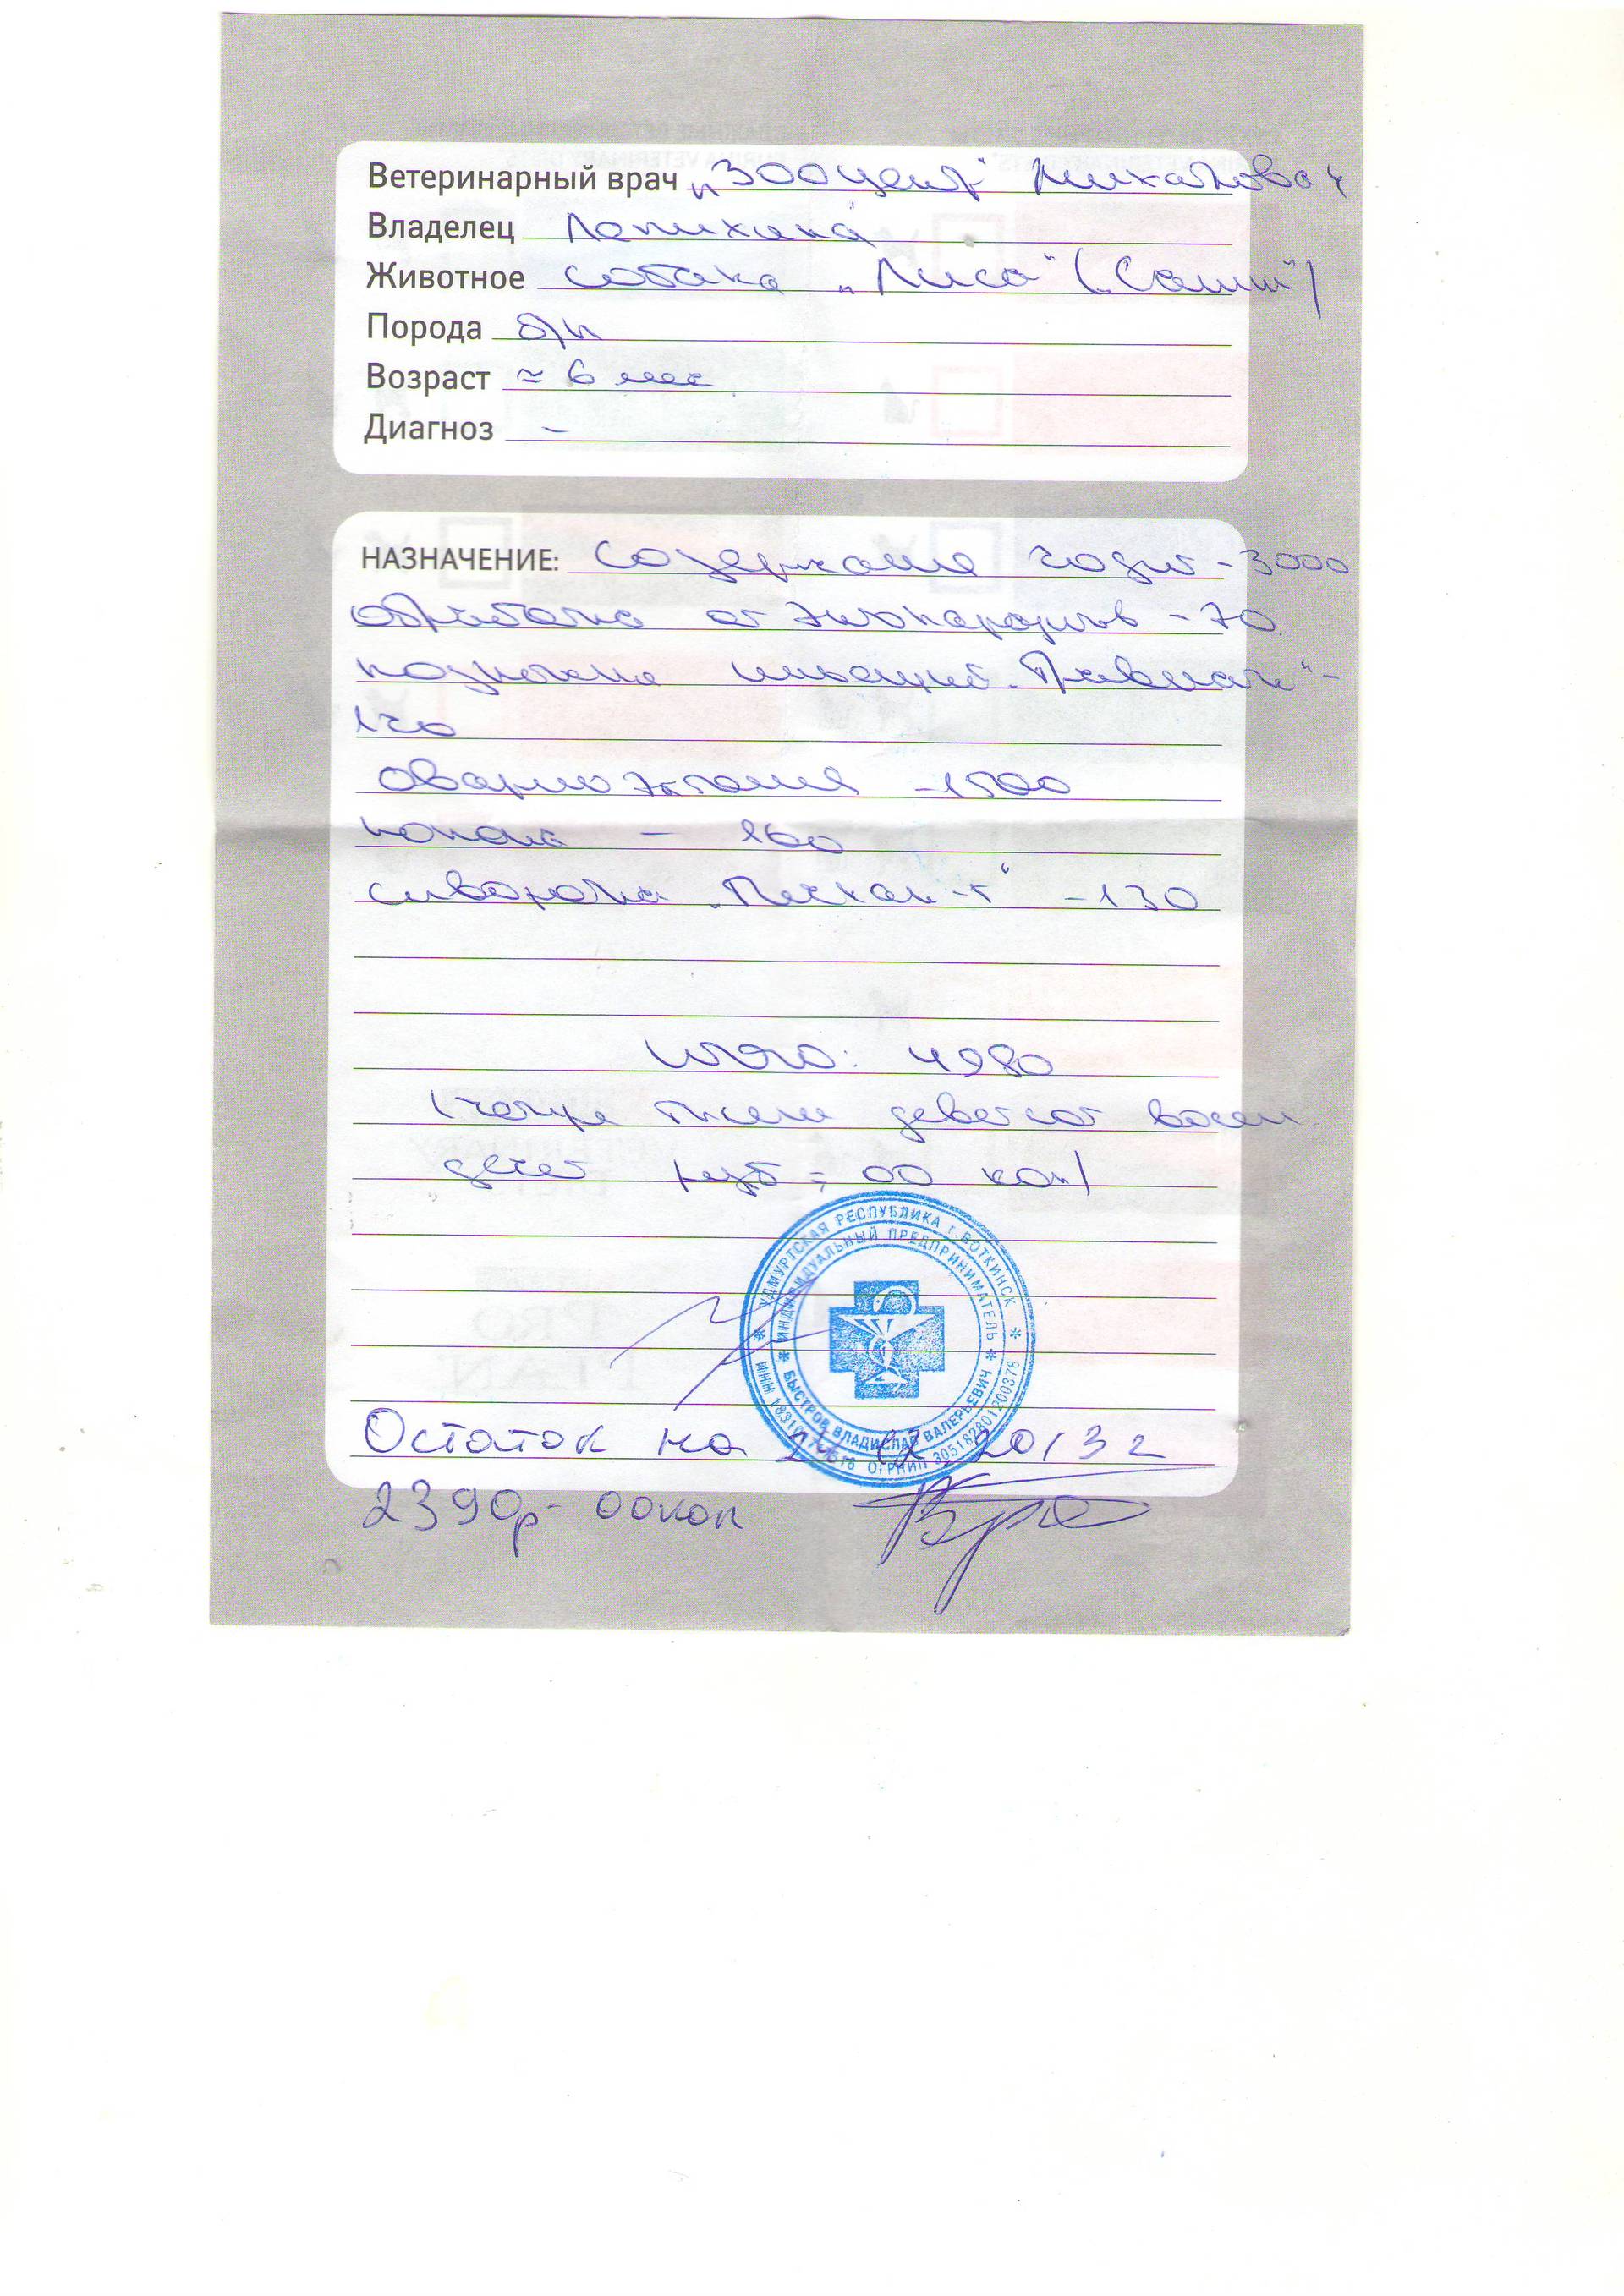 Ветеринарный врач „Зооцентр"
Владелец Лопихина
Животное собака „Лиса" („Санни")
Порода б/п
Возраст ≈ 6 мес
Диагноз –
НАЗНАЧЕНИЕ: содержание - 3000
обработка от эктопаразитов - 70
инъекций
120
овариоэктомия - 1500
попона - 160
сыворотка - 130
Итого: 4980
(четыре тысячи девятсот восем
десят руб = 00 коп)
УДМУРТСКАЯ РЕСПУБЛИКА г. ВОТКИНСК
ИНДИВИДУАЛЬНЫЙ ПРЕДПРИНИМАТЕЛЬ
БЫСТРОВ ВЛАДИСЛАВ ВАЛЕРЬЕВИЧ
ИНН ОГРНИП 305182801200378
Остаток на 2013г
2390р- 00коп